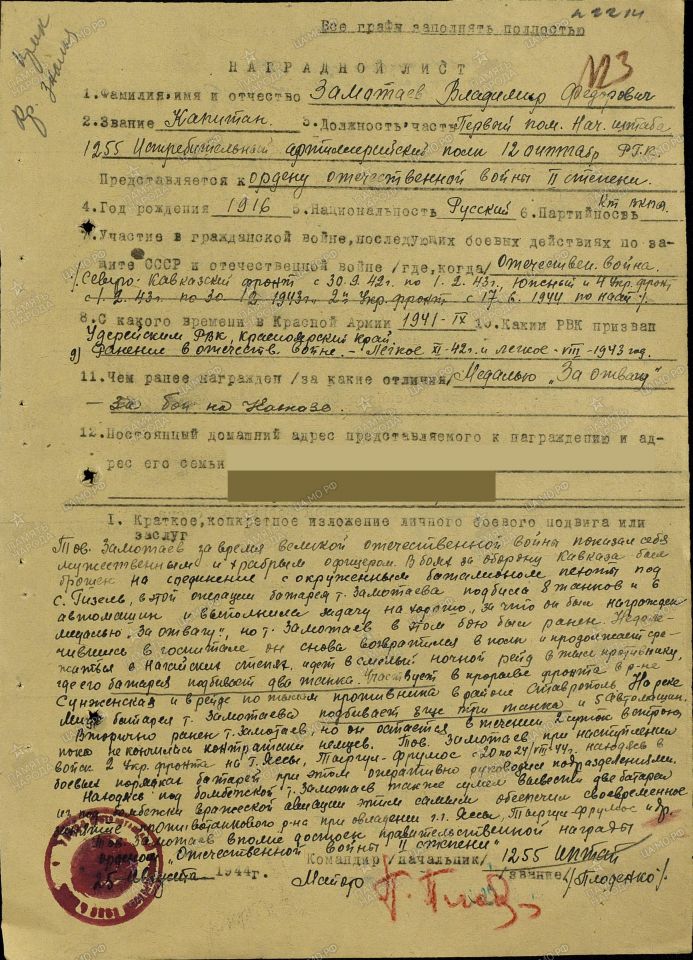 Все графы заполнять полностью
№3
НАГРАДНОЙ ЛИСТ
1.Фамилия,имя и отчество Замотаев Владимир Федорович
2.Звание Капитан. 3.Должность,часть Первый пом. Нач. штаба
1255 Истребительный артиллерийский полк 12 РГК.
Представляется к ордену отечественной войны II степени.
4.Год рождения 1916 5.Национальность Русский 6.Партийность Кт ВКПб.
7.Участие в гражданской войне,последующих боевых действиях по за-
щите СССР и отечественной войне /где,когда/ Отечествен. война.
Северо-Кавказский фронт с 30.9.42г. по 1.2.43г., Южный и 4 Укр. фронт
с 1.2.43г. по 30.12.1943г. 2й Укр. фронт с 17.6.1944 по наст.
8.С какого времени в Красной Армии 1941-IX 10.Каким РВК призван
Удерейским РВК, Красноярский край
9) Ранение в отечеств. войне. - Легкое XI-42г. и легкое - VIII-1943 год.
11.Чем ранее награжден /за какие отличия/ Медалью „За отвагу"
– За бои на Кавказе.
12.Постоянный домашний адрес представляемого к награждению и ад-
рес его семьи
I. Краткое,конкретное изложение личного боевого подвига или
заслуг
Тов. Замотаев за время великой отечественной войны показал себя
мужественным и храбрым офицером. В боях за оборону Кавказа был
брошен на соединение с окруженным баталионом пехоты под
с. Гизель, в этой операции батарея т. Замотаева подбила 8 танков и 6
автомашин и выполнила задачу на хорошо, за что он был награжден
медалью „За отвагу", но т. Замотаев в этом бою был ранен.
чившись в госпитале он снова возвратился в полк и продолжает сра-
жаться в Нагайских степях, идет в смелый ночной рейд в тыл противнику,
где его батарея подбивает два танка. Участвует в прорыве фронта в р-не
Сунженская и в рейде по тылам противника в районе Ставрополь. На реке
Миус батарея т. Замотаева подбивает еще три танка и 5 автомашин.
Вторично ранен т. Замотаев, но он остается в течении 2 суток в строю,
пока не кончилась контратаки немцев. Тов. Замотаев при наступлении
войск 2 Укр. фронта на г. Яссы, Таргул-Фрумос с 20 по 24/VIII-44г. находясь в
боевых порядках батарей при этом оперативно руководил подразделениями.
Находясь под бомбежкой т. Замотаев также сумел вывести две батареи
из под бомбежки вражеской авиации этим самым обеспечил своевременное
противотанкового р-на при овладении г.г. Яссы, Таргул-Фрумос и др.
Тов. Замотаев вполне достоин правительственной награды
ордена „Отечественной войны II степени"
Командир /начальник/ 1255 иптап
25 августа 1944г. Майор /звание/ /Плоденко/